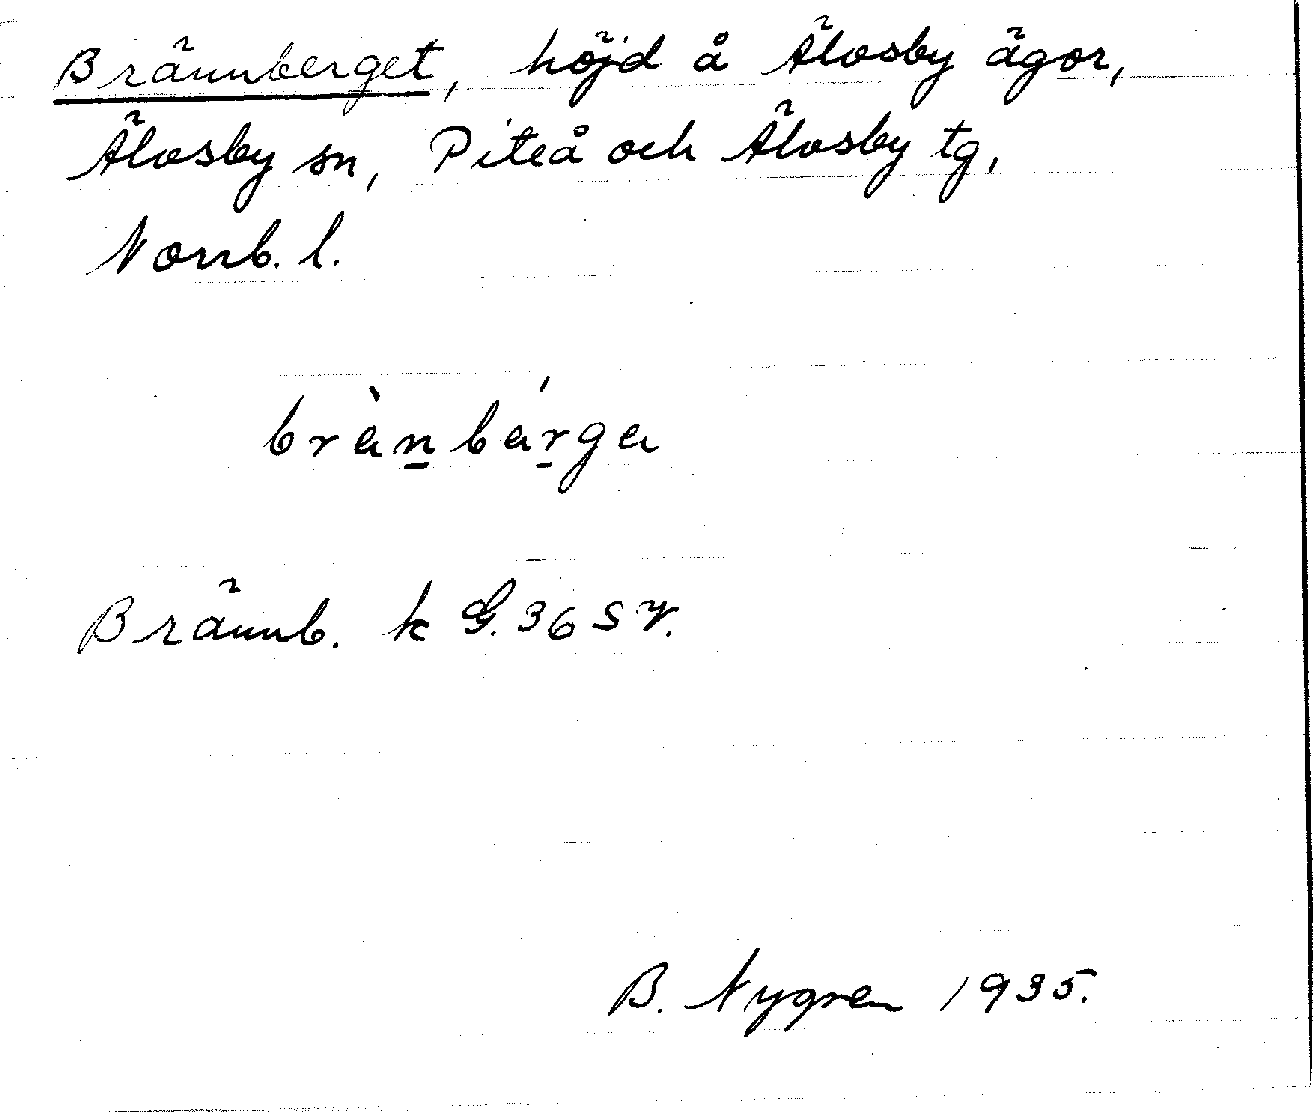 Brännberget, höjd å Älvsby ägor,
Älvsby sn, Piteå och Älvsby tg,
Norrb. l.
brànbárga
Brännb. k G. 36 SV.
B. Nygren 1935.